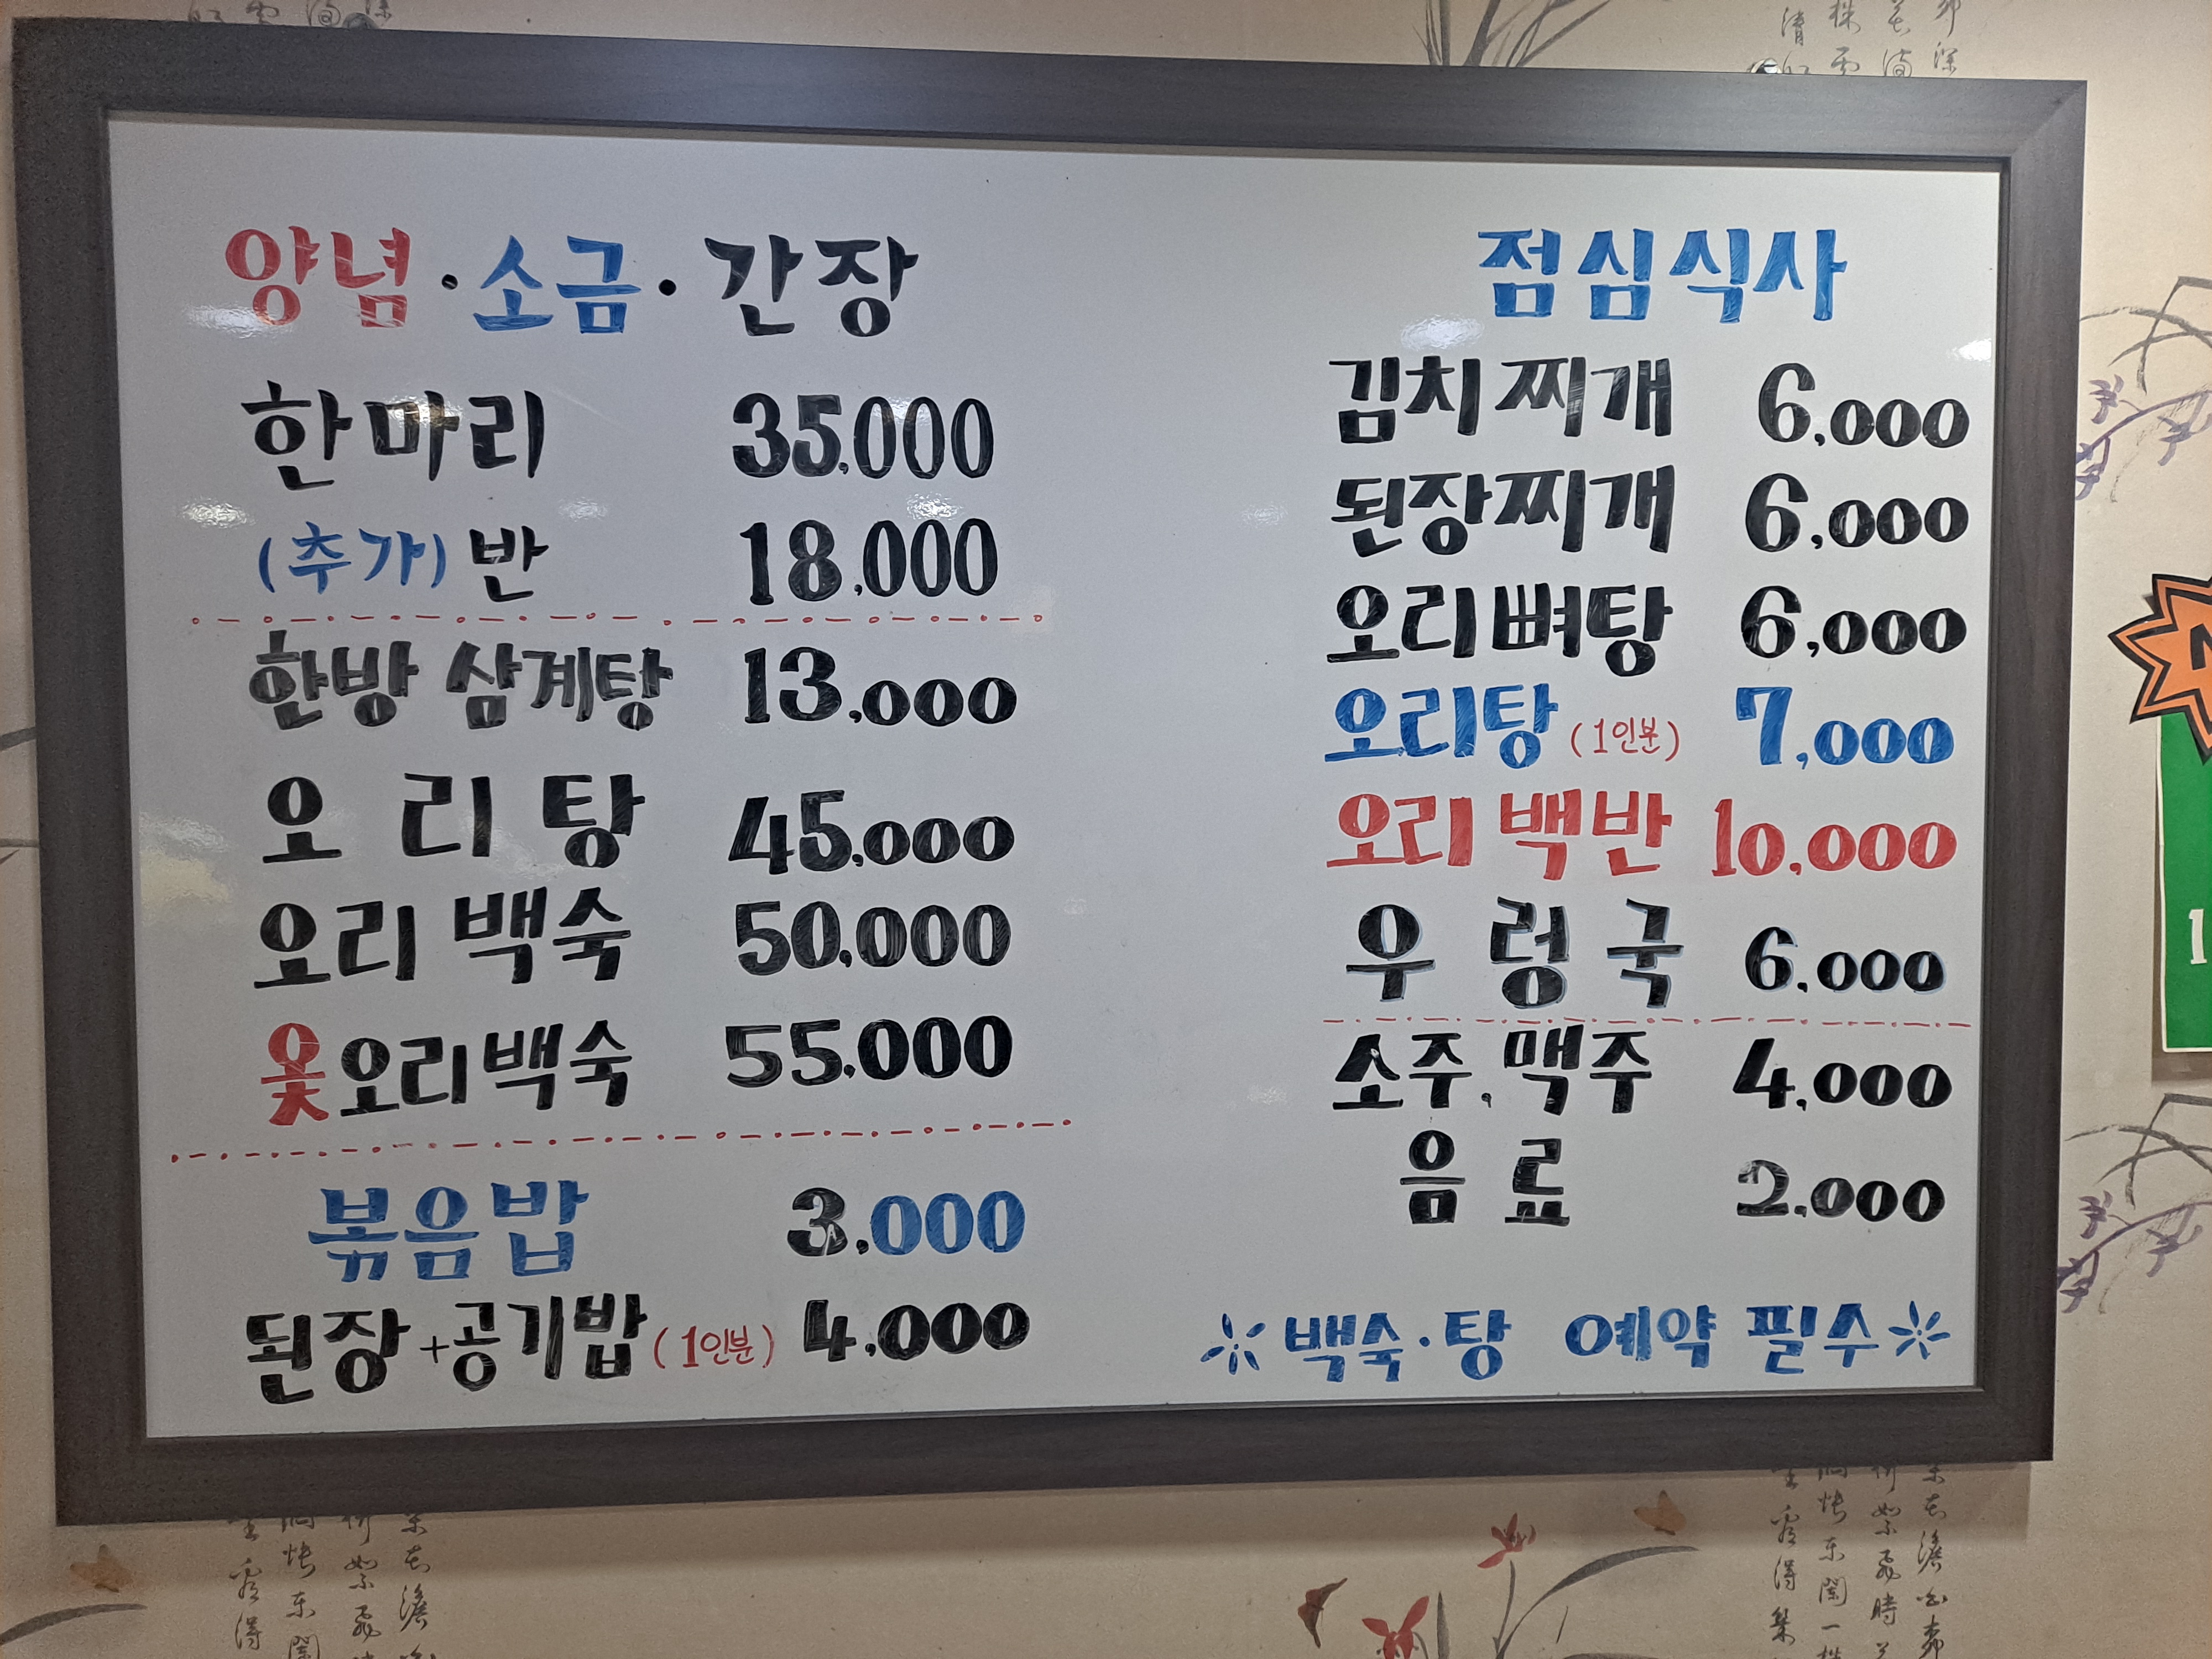 양념·소금·간장
한마리 35,000
(추가) 반 18,000
한방 삼계탕 13,000
오리탕 45,000
오리백숙 50,000
옻오리백숙 55,000
볶음밥 3,000
된장+공기밥(1인분) 4,000
점심식사
김치찌개 6,000
된장찌개 6,000
오리뼈탕 6,000
오리탕(1인분) 7,000
오리백반 10,000
우렁국 6,000
소주.맥주 4,000
음료 2,000
※백숙·탕 예약 필수※